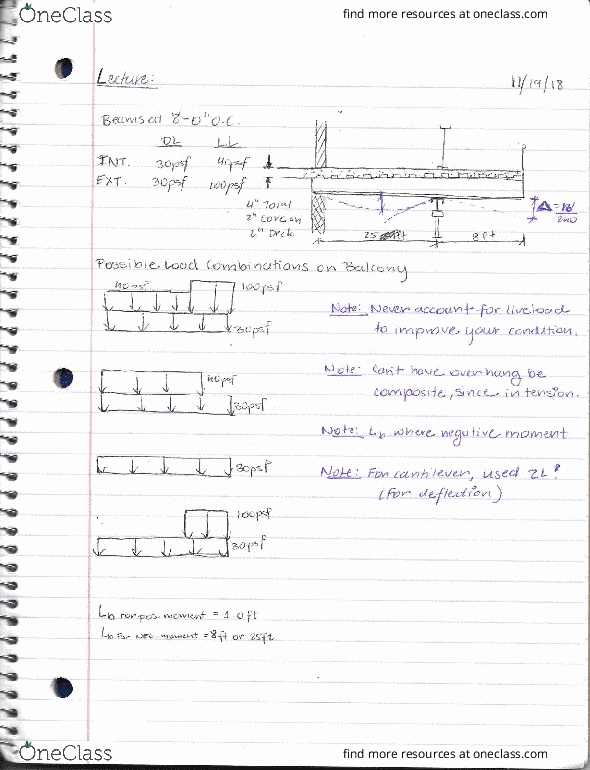 OneClass
find more resources at oneclass.com
Lecture:
11/19/18
Beams at 8'-0" O.C.
DL LL
INT. 30psf 40psf
EXT. 30psf 100psf
4" Total
2" Conc on
2" Deck
25 ft 8 ft
Possible Load Combinations on Balcony
40psf
100psf
30psf
Note: Never account for liveload
to improve your condition.
40psf
30psf
Note: Can't have overhang be
composite, since in tension.
Note: Lb where negutive moment
30psf
Note: For cantilever, used 2L!
(For deflection)
100psf
30psf
Lb for pos. moment = 1.0ft
Lb for neg. moment = 8ft or 25ft
OneClass
find more resources at oneclass.com